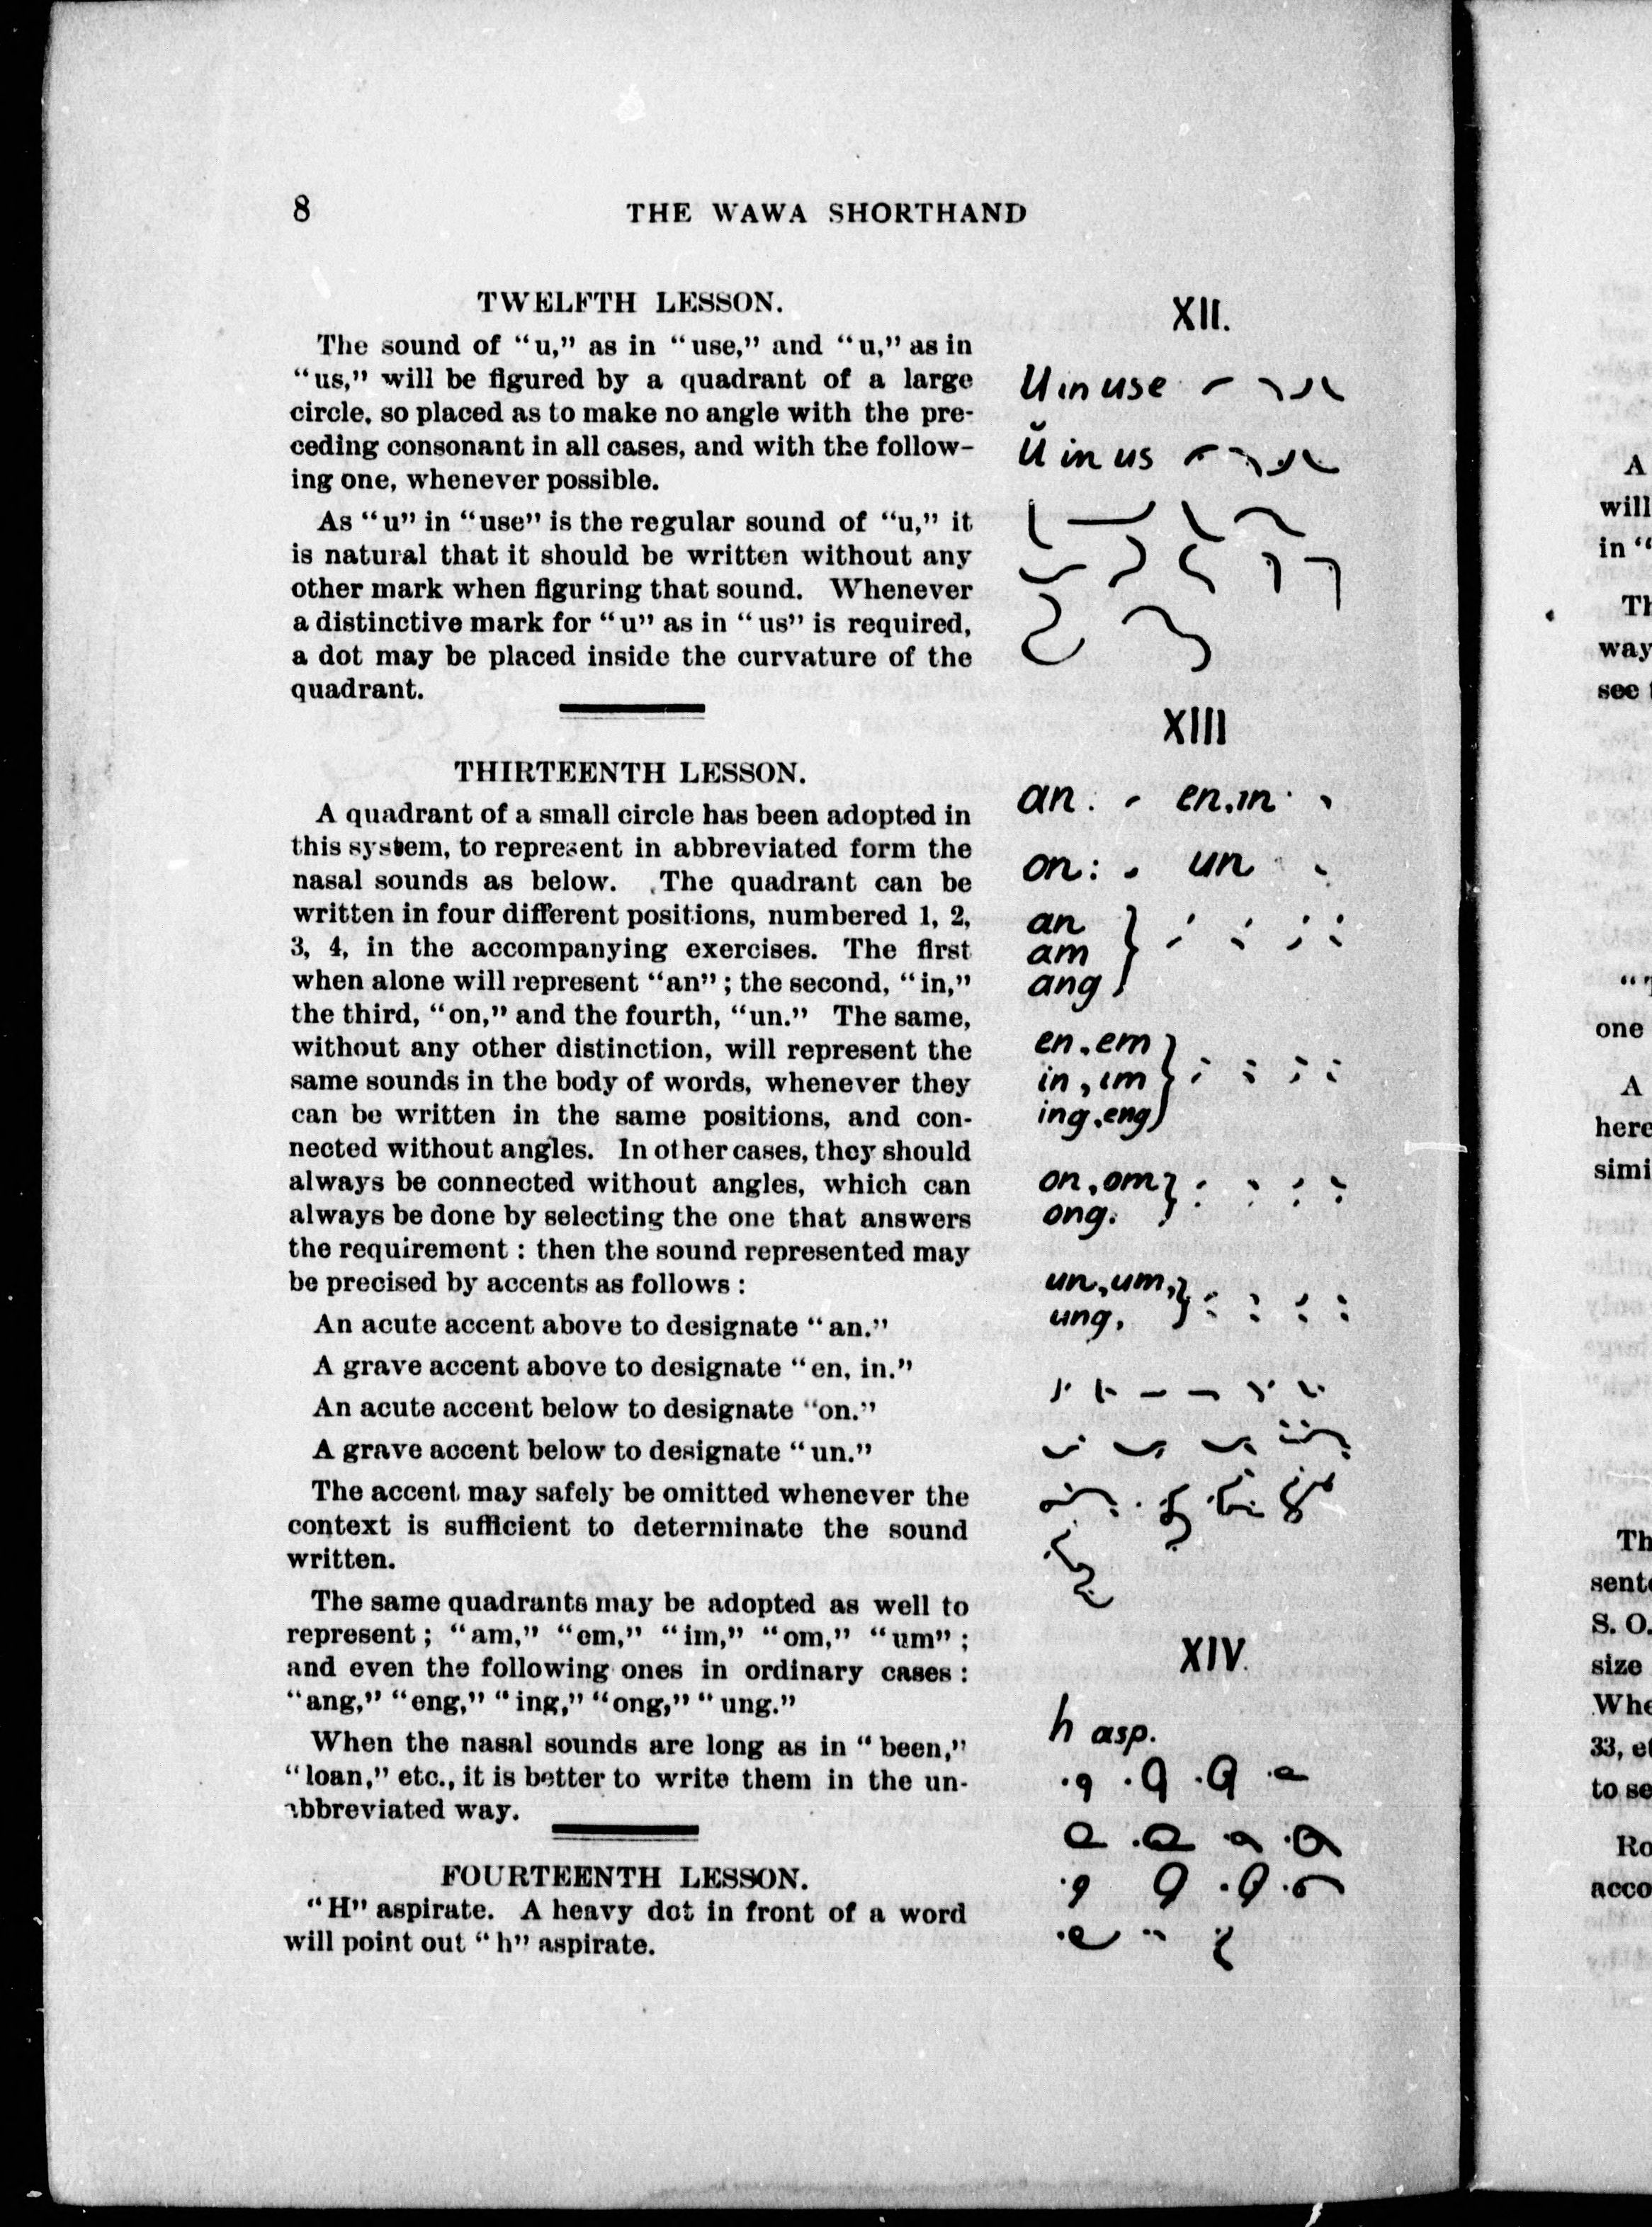 8
THE WAWA SHORTHAND
TWELFTH LESSON.
The sound of “u,” as in “use,” and “u,” as in
“us,” will be figured by a quadrant of a large
circle, so placed as to make no angle with the pre-
ceding consonant in all cases, and with the follow-
ing one, whenever possible.
As “u” in “use” is the regular sound of “u,” it
is natural that it should be written without any
other mark when figuring that sound. Whenever
a distinctive mark for “u” as in “us” is required,
a dot may be placed inside the curvature of the
quadrant.
THIRTEENTH LESSON.
A quadrant of a small circle has been adopted in
this system, to represent in abbreviated form the
nasal sounds as below. The quadrant can be
written in four different positions, numbered 1, 2,
3, 4, in the accompanying exercises. The first
when alone will represent “an”; the second, “in,”
the third, “on,” and the fourth, “un.” The same,
without any other distinction, will represent the
same sounds in the body of words, whenever they
can be written in the same positions, and con-
nected without angles. In other cases, they should
always be connected without angles, which can
always be done by selecting the one that answers
the requirement : then the sound represented may
be precised by accents as follows :
An acute accent above to designate “an.”
A grave accent above to designate “en, in.”
An acute accent below to designate “on.”
A grave accent below to designate “un.”
The accent may safely be omitted whenever the
context is sufficient to determinate the sound
written.
The same quadrants may be adopted as well to
represent ; “am,” “em,” “im,” “om,” “um” ;
and even the following ones in ordinary cases :
“ang,” “eng,” “ing,” “ong,” “ung.”
When the nasal sounds are long as in “been,”
“loan,” etc., it is better to write them in the un-
abbreviated way.
FOURTEENTH LESSON.
“H” aspirate. A heavy dot in front of a word
will point out “h” aspirate.
XII.
U in use
Ŭ in us
XIII
an. en, in
on: un
an
am
ang
en, em
in, im
ing, eng
on, om
ong.
un, um,
ung,
XIV.
h asp.
A
will
in “
Th
way
see
“T
one
A
here
simi
Th
sent
S. O.
size
Whe
33, et
to se
Ro
acco